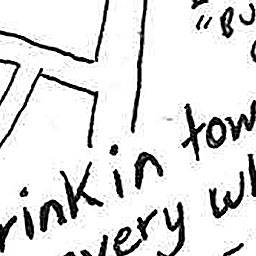 "BU
rink in tow
very wh